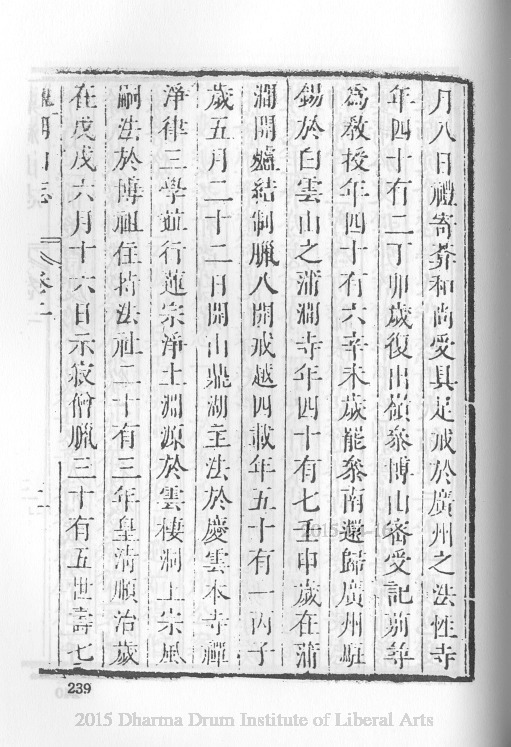 月八日禮寄菶和尚受具足戒於廣州之法性寺
年四十有二丁卯歲復出嶺參博山密受記莂尊
為教授年四十有六辛未歲罷參南還歸廣州駐
錫於白雲山之蒲澗寺年四十有七壬申歲在蒲
澗開爐結制臘八開戒越四載年五十有一丙子
歲五月二十二日開山鼎湖主法於慶雲本寺禪
淨律三學並行蓮宗淨土淵源於雲棲洞上宗風
嗣法於博祖住持法社二十有三年皇清順治歲
在戊戌六月十六日示寂僧臘三十有五世壽七
山志 卷二
239
2015 Dharma Drum Institute of Liberal Arts